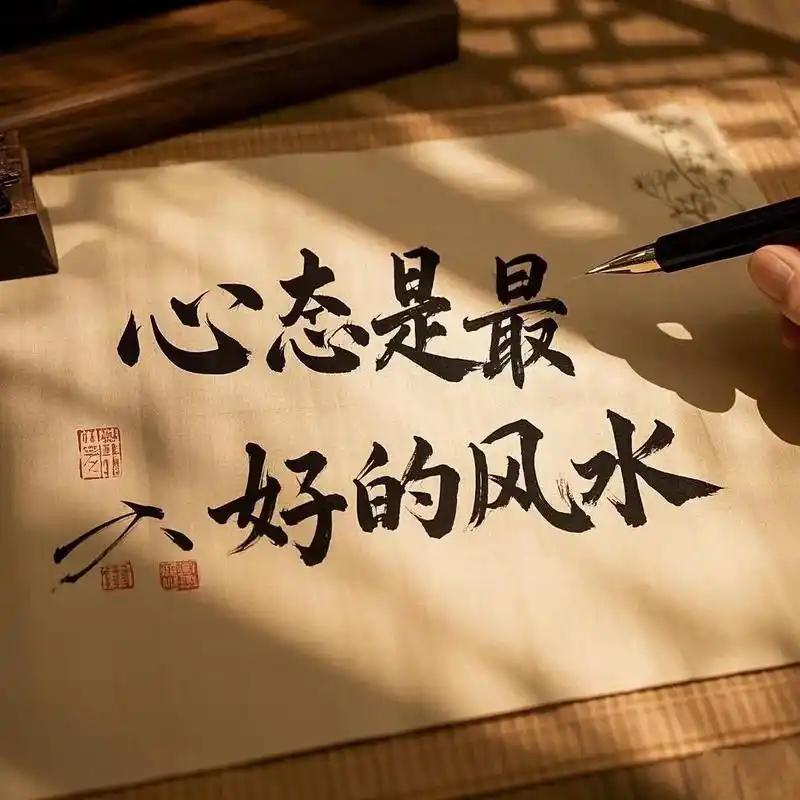 心态是最
好的风水